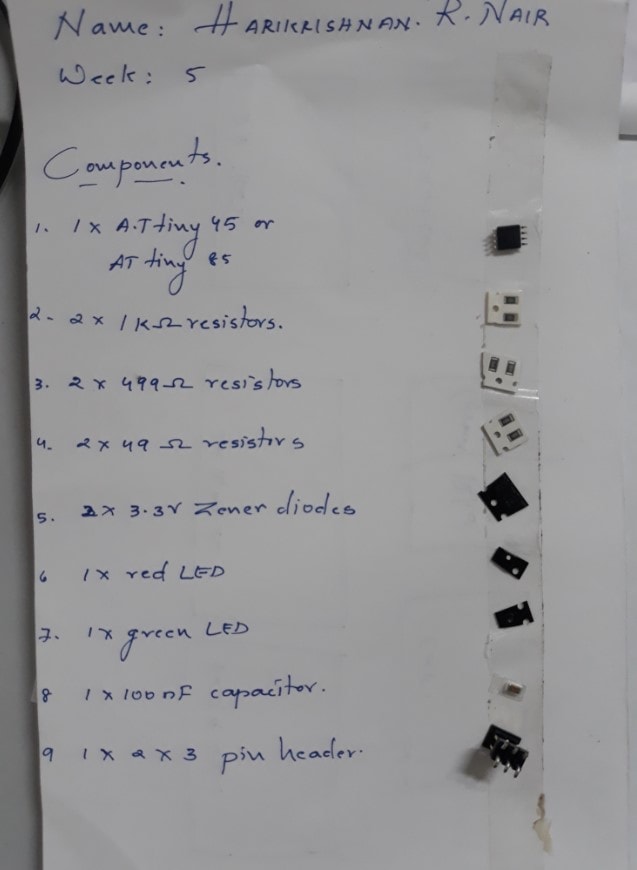 Name: HARIKRISHNAN. R. NAIR
Week: 5
Components.
1. 1 x A.Ttiny 45 or
AT tiny 85
2. 2 x 1KΩ resistors.
3. 2 x 499Ω resistors
4. 2x 49 Ω resistors
5. 2x 3.3V Zener diodes
6 1x red LED
7. 1x green LED
8 1 x 100nF capacitor.
9 1 x 2 x 3 pin header.